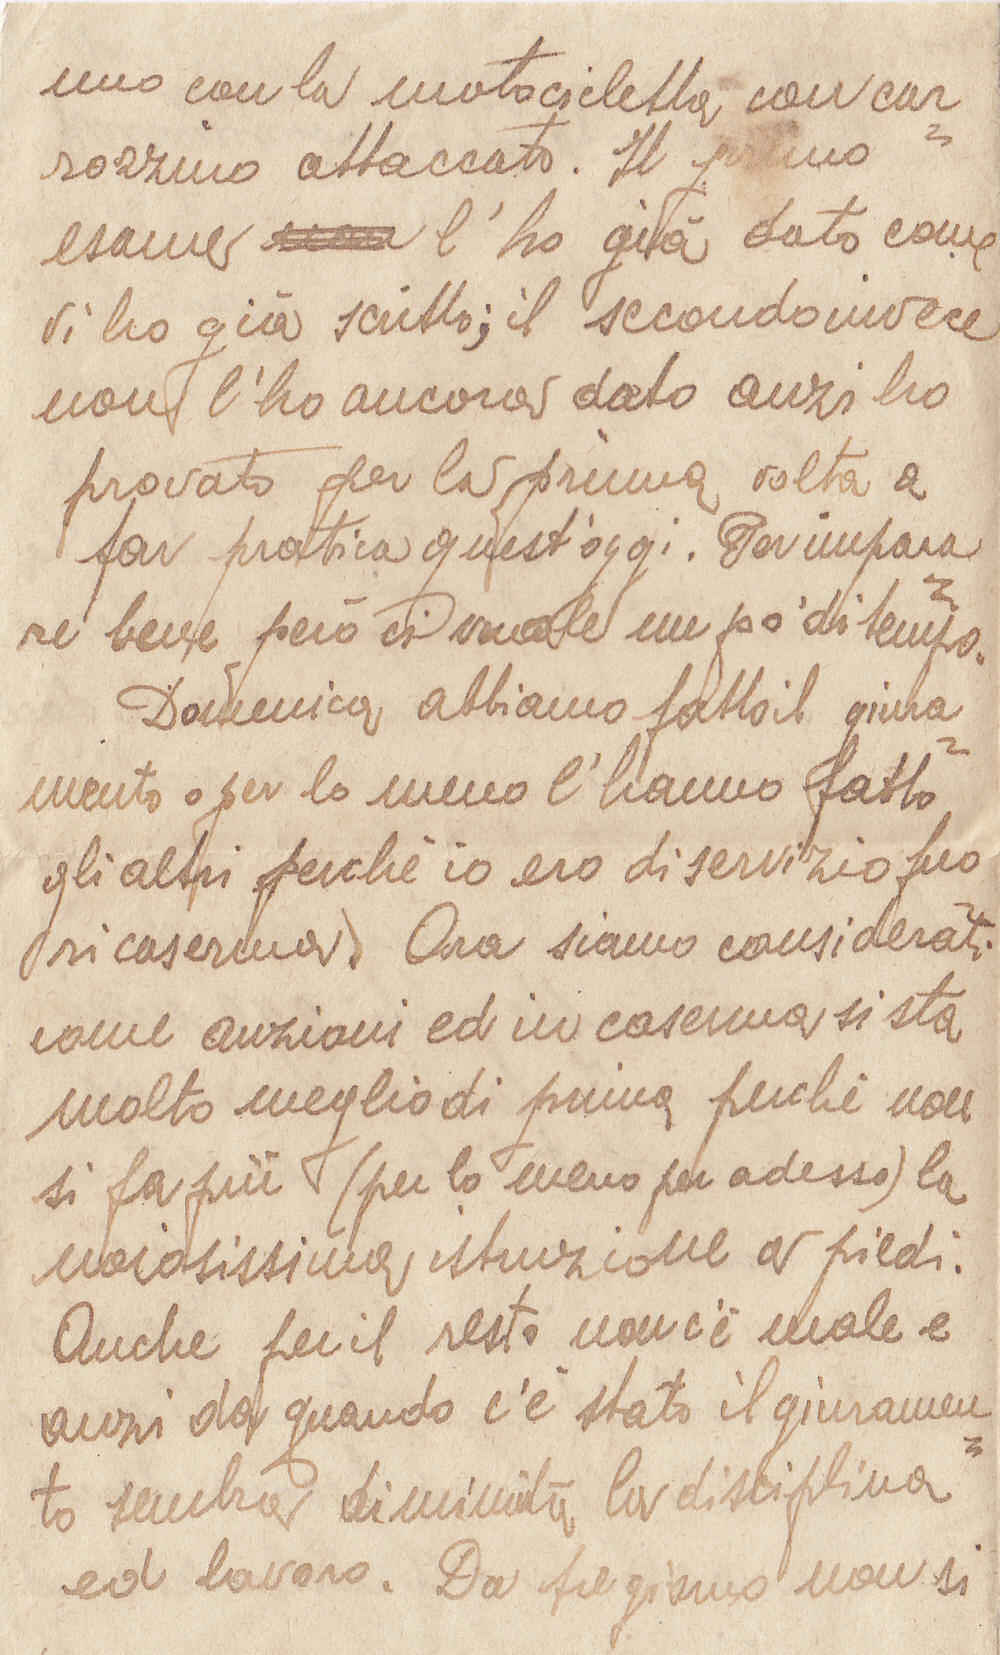 uno con la motocicletta con car=
rozzino attaccato. Il primo
esame non l'ho già dato come
vi ho già scritto; il secondo invece
non l'ho ancora dato anzi ho
provato per la prima volta a
far pratica quest'oggi. Per impara=
re bene però ci vuole un pò di tempo.
Domenica abbiamo fatto il giura=
mento o per lo meno l'hanno fatto
gli altri perchè io ero di servizio fuo
ri caserma. Ora siamo considerati
come anziani ed in caserma si sta
molto meglio di prima perchè non
si fa più (per lo meno per adesso) la
noiosissima istruzione a piedi.
Anche per il resto non c'è male e
anzi da quando c'è stato il giuramen=
to sembra diminuita la disciplina
ed lavoro. Da tre giorno non si